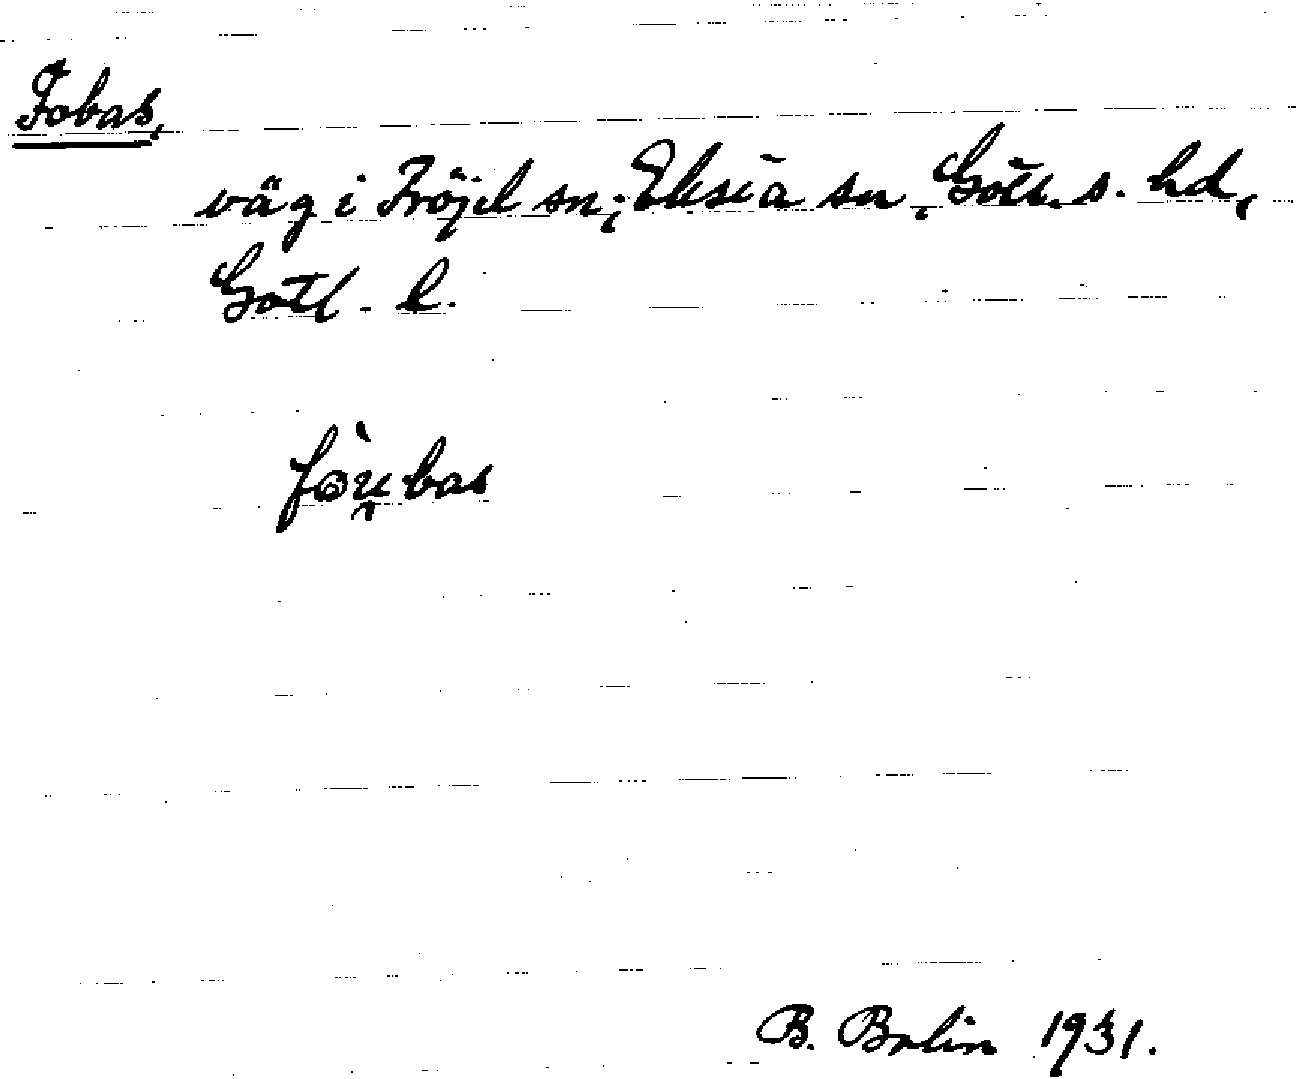 Fobas,
väg i Fröjel sn; Eksta sn, Gotl. s. hd,
Gotl. l.
fò̤u̯bas
B. Bolin 1931.